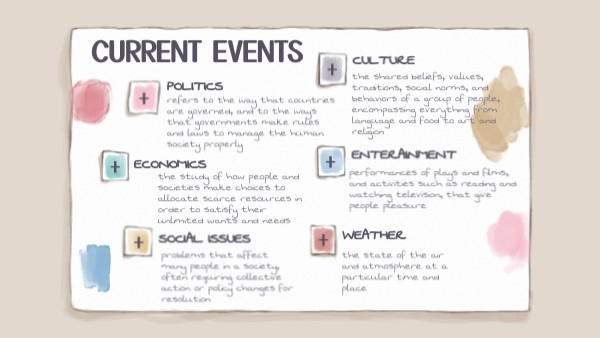 CURRENT EVENTS
POLITICS
refers to the way that countries
are governed, and to the ways
that governments make rules
and laws to manage the human
society properly
ECONOMICS
the study of how people and
societies make choices to
allocate scarce resources in
order to satisfy their
unlimited wants and needs
SOCIAL ISSUES
problems that affect
many people in a society,
often requiring collective
action or policy changes for
resolution
CULTURE
the shared beliefs, values,
traditions, social norms, and
behaviors of a group of people,
encompassing everything from
language and food to art and
religion
ENTERAINMENT
performances of plays and films,
and activities such as reading and
watching televison, that give
people pleasure
WEATHER
the state of the air
and atmosphere at a
particular time and
place